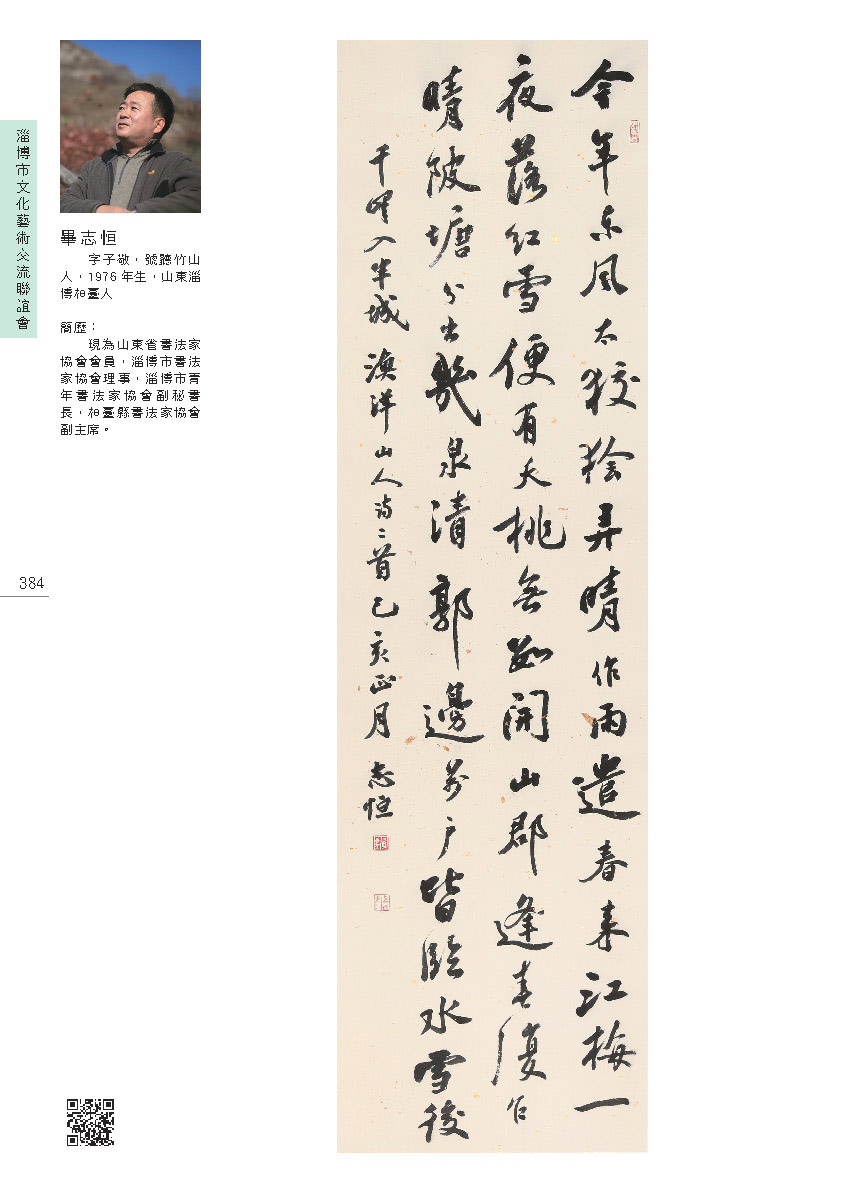 淄博市文化藝術交流聯誼會
畢志恒
字子敬，號聽竹山
人，1976 年生，山東淄
博桓臺人
簡歷：
現為山東省書法家
協會會員，淄博市書法
家協會理事，淄博市青
年書法家協會副秘書
長，桓臺縣書法家協會
副主席。
384
今年东風太狡獪弄晴作雨遣春来江梅一
夜落紅雪便有夭桃無數開山郡逢春復乍
晴陂塘分出幾泉清郭邊萬户皆臨水雪後
千峰入半城漁洋山人詩二首己亥正月志恒